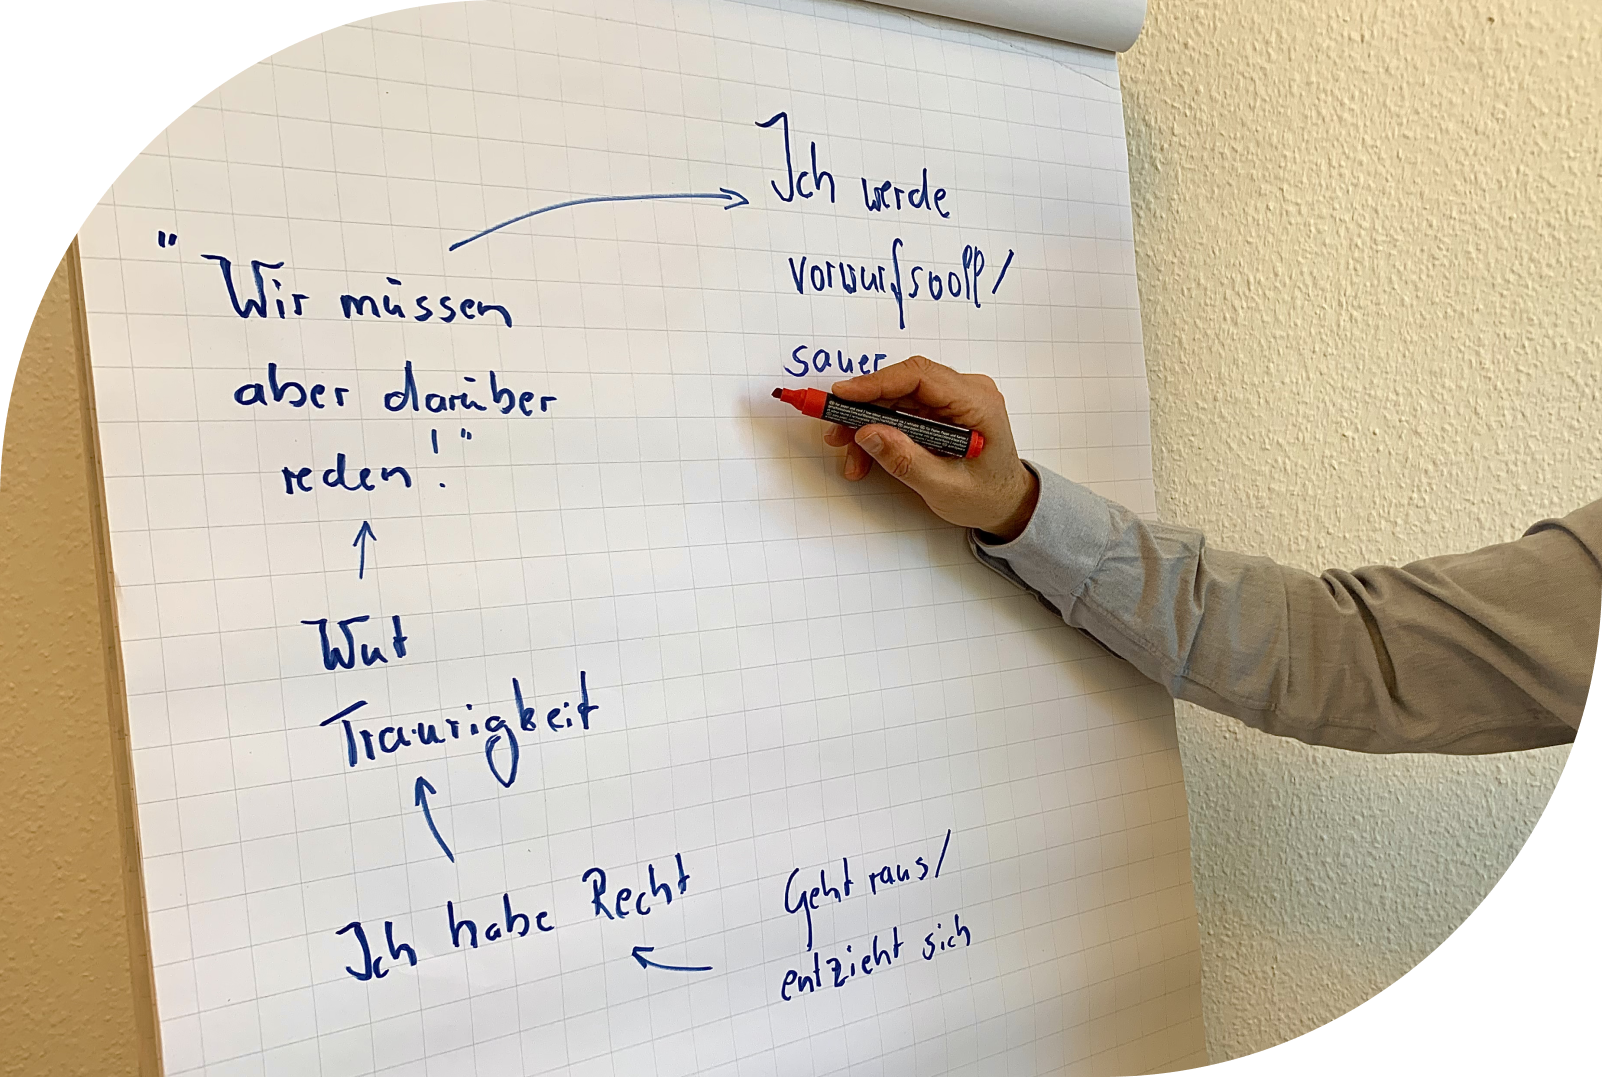 "Wir müssen
aber darüber
reden!"
Ich werde
vorwurfsvoll/
sauer
Wut
Traurigkeit
Ich habe Recht
Geht raus/
entzieht sich